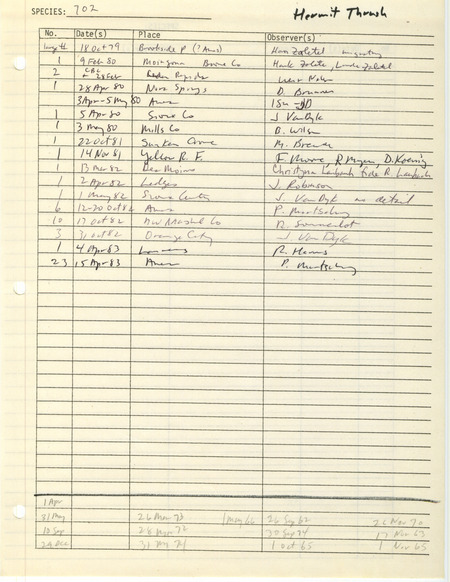 SPECIES: 702 Hermit Thrush
No. Date(s) Place Observer(s)
18 Oct 79 Brookside P (Ames) Hank Zaletel
1 9 Feb 80 Montgom Boone Co Hank Zaletel, Linda Zaletel
2 CBC
1 28 Apr 80 Nora Springs D. Brunner
3 Apr - 5 May 80 Ames
1 5 Apr 80 Sioux Co J Van Dyk
1 3 May 80 Mills Co B. Wilson
1 22 Oct 81 Sunken Grove M. Brewer
1 14 Nov 81 Yellow R. F. F. Moore, R Myers, D. Koenig
1 13 Mar 82 Des Moines Christyna Laubach fide R Laubach
1 2 Apr 82 Ledges J. Robinson
1 1 May 82 Sioux Center J. Van Dyk no detail
6 12-20 Oct 82 Ames P. Martsching
10 17 Oct 82 NW Marshall Co
3 31 Oct 82 Orange City J Van Dyk
1 4 Apr 83 R. Harms
23 15 Apr 83 Ames P. Martsching
1 Apr
31 May 26 Mar 73 1 May 66 26 Sep 62 26 Nov 70
10 Sep 28 Mar 72 30 Sep 74 17 Nov 63
24 Dec 31 1 Oct 65 1 Nov 65